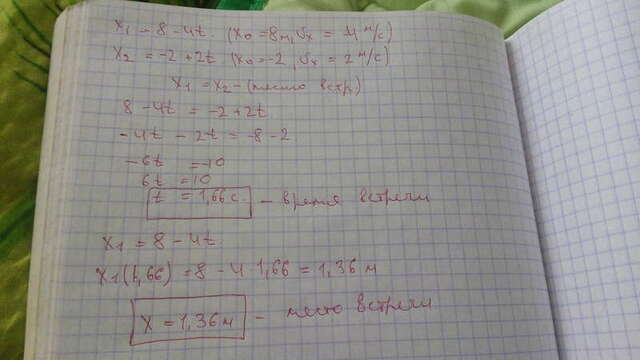 x₁ = 8 - 4t. (x₀ = 8м, υₓ = 4 м/с)
x₂ = -2 + 2t (x₀ = -2, υₓ = 2 м/с)
x₁ = x₂ - (место встр)
8 - 4t = -2 + 2t
-4t - 2t = -8 - 2
-6t = -10
6t = 10
t = 1,66 с. - время встречи
x₁ = 8 - 4t.
x₁(1,66) = 8 - 4 · 1,66 = 1,36 м
x = 1,36 м - место встречи